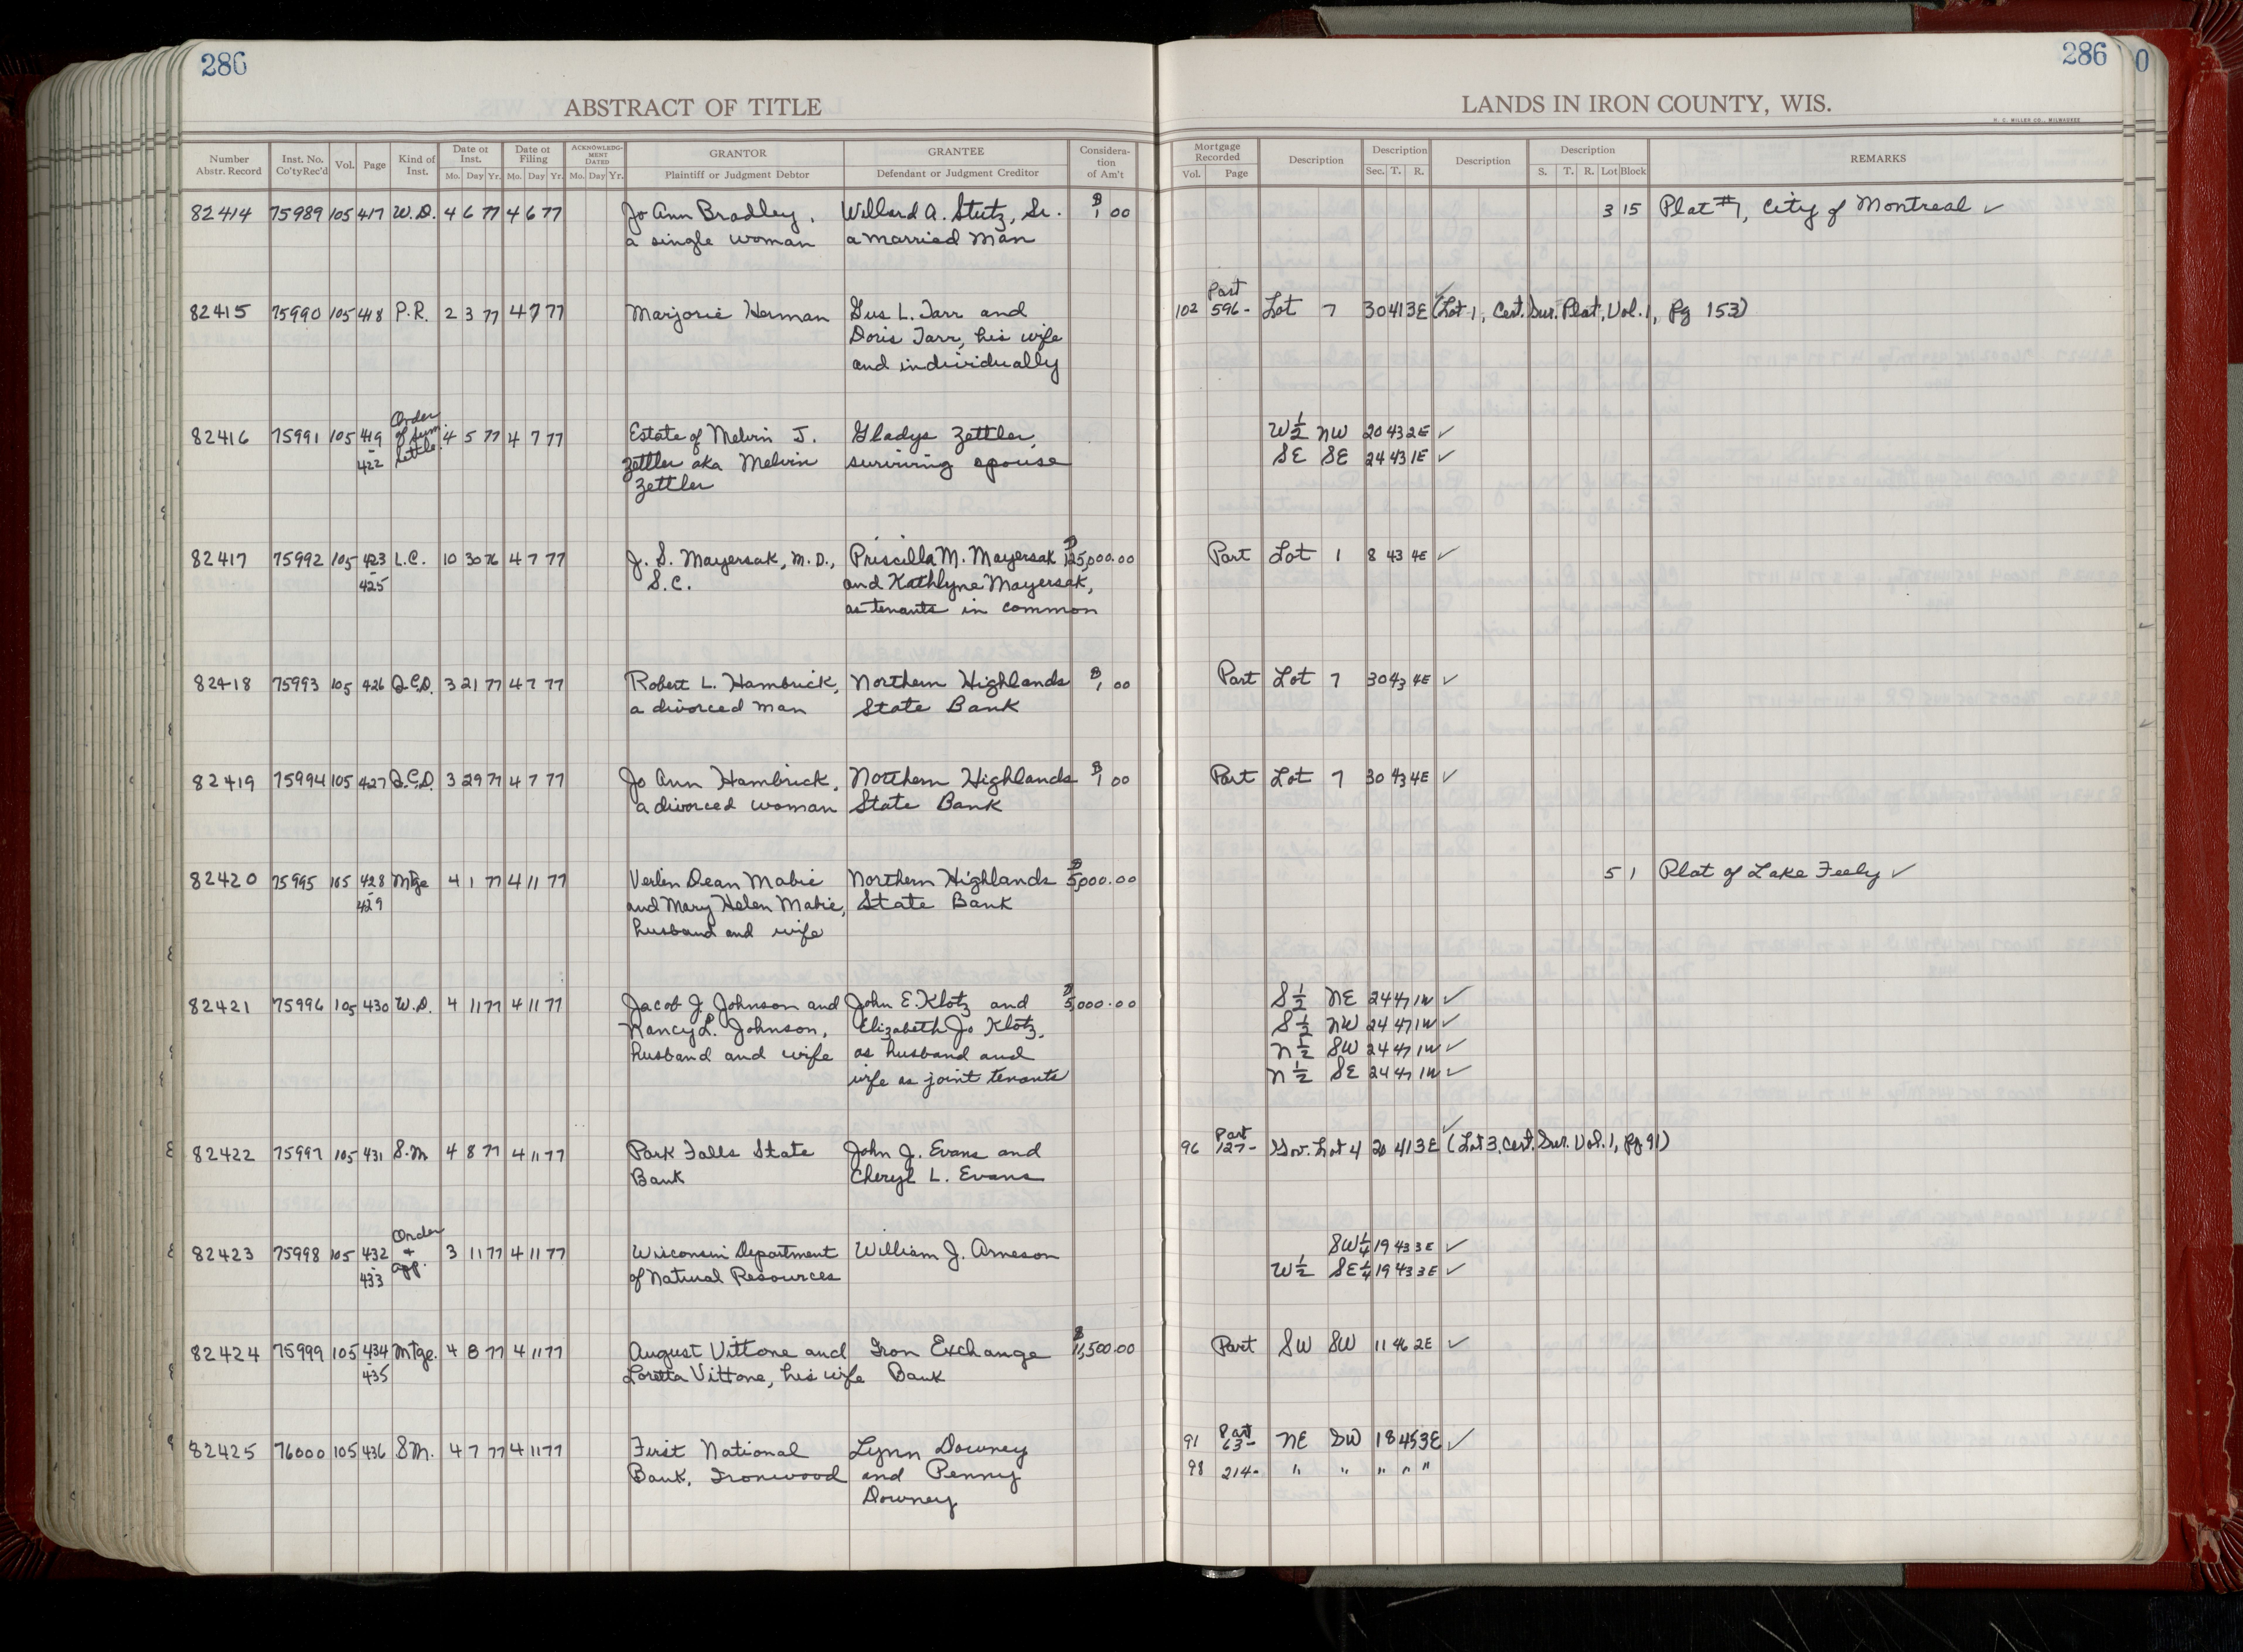 286
286
0
ABSTRACT OF TITLE
LANDS IN IRON COUNTY, WIS.
H. C. MILLER CO., MILWAUKEE
Number Abstr. Record
Inst. No. Co'ty Rec'd
Vol.
Page
Kind of Inst.
Date of Inst. Mo. Day Yr.
Date of Filing Mo. Day Yr.
ACKNOWLEDGMENT DATED Mo. Day Yr.
GRANTOR Plaintiff or Judgment Debtor
GRANTEE Defendant or Judgment Creditor
Consideration of Am't
Mortgage Recorded Vol. Page
Description
Description Sec. T. R.
Description
Description S. T. R. Lot Block
REMARKS
82414 75989 105 417 W.D. 4 6 77 4 6 77 Jo Ann Bradley, Willard A. Stutz, Sr. $1 00 3 15 Plat #1, City of Montreal ✓
a single woman a married man
Part
82415 75990 105 418 P.R. 2 3 77 4 7 77 Marjorie Herman Gus L. Tarr and 102 596- Lot 7 30 41 3E ✓ (Lot 1, Cert. Sur. Plat, Vol. 1, Pg 153)
Doris Tarr, his wife
and individually
Order
82416 75991 105 419 of Sum. 4 5 77 4 7 77 Estate of Melvin J. Gladys Zettler, W½ NW 20 43 2E ✓
- 422 settle. Zettler aka Melvin surviving spouse SE SE 24 43 1E ✓
Zettler
82417 75992 105 423 L.C. 10 30 76 4 7 77 J. S. Mayersak, M.D., Priscilla M. Mayersak $125,000.00 Part Lot 1 8 43 4E ✓
- 425 S.C. and Kathlyne Mayersak,
as tenants in common
82418 75993 105 426 Q.C.D. 3 21 77 4 7 77 Robert L. Hambrick, Northern Highlands $1 00 Part Lot 7 30 43 4E ✓
a divorced man State Bank
82419 75994 105 427 Q.C.D. 3 29 77 4 7 77 Jo Ann Hambrick, Northern Highlands $1 00 Part Lot 7 30 43 4E ✓
a divorced woman State Bank
82420 75995 105 428 Mtge 4 1 77 4 11 77 Verlin Dean Mabie Northern Highlands $5,000.00 5 1 Plat of Lake Feely ✓
- 429 and Mary Helen Mabie, State Bank
husband and wife
82421 75996 105 430 W.D. 4 11 77 4 11 77 Jacob J. Johnson and John E. Klotz and $5,000.00 S½ NE 24 47 1W ✓
Nancy L. Johnson, Elizabeth Jo Klotz, S½ NW 24 47 1W ✓
husband and wife as husband and N½ SW 24 47 1W ✓
wife as joint tenants N½ SE 24 47 1W ✓
Part
82422 75997 105 431 S.M 4 8 77 4 11 77 Park Falls State John J. Evans and 96 127- Gov. Lot 4 20 41 3E ✓ (Lot 3, Cert. Sur. Vol. 1, Pg 91)
Bank Cheryl L. Evans
Order
82423 75998 105 432 + 3 11 77 4 11 77 Wisconsin Department William J. Arneson SW¼ 19 43 3E ✓
- 433 app. of Natural Resources W½ SE¼ 19 43 3E ✓
82424 75999 105 434 Mtge. 4 8 77 4 11 77 August Vittone and Iron Exchange $11,500.00 Part SW SW 11 46 2E ✓
- 435 Loretta Vittone, his wife Bank
Part
82425 76000 105 436 SM. 4 7 77 4 11 77 First National Lynn Downey 91 63- NE SW 18 45 3E ✓
Bank, Ironwood and Penny 98 214- " " " " "
Downey